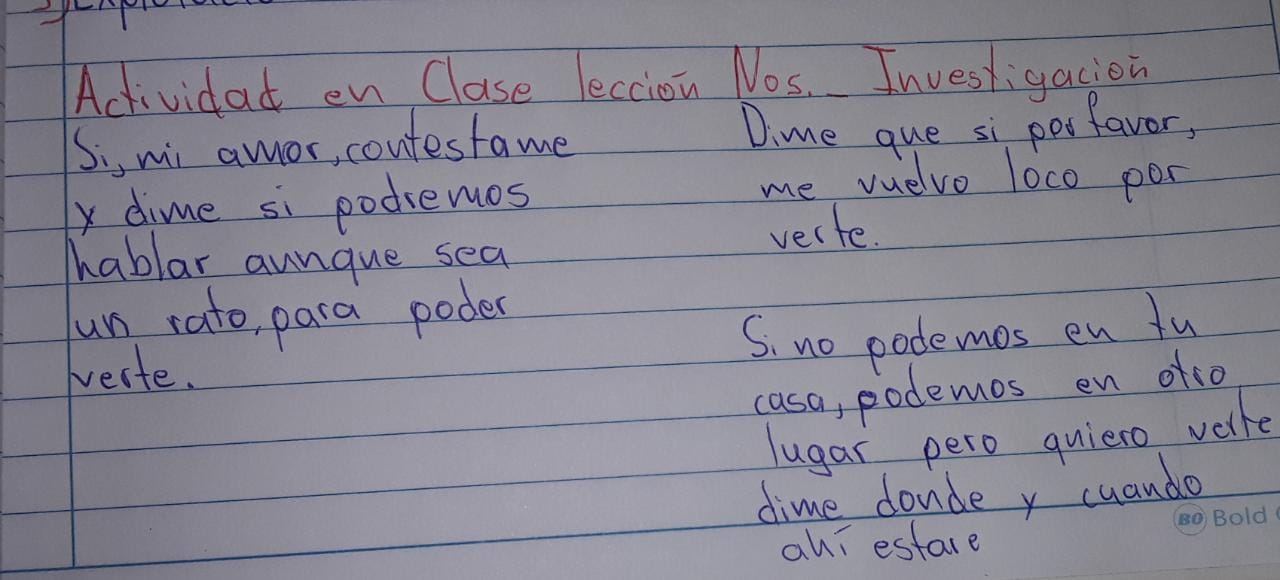 Actividad en Clase lección Nos._ Investigación
Si, mi amor, contestame
y dime si podremos
hablar aunque sea
un rato, para poder
verte.
Dime que si por favor,
me vuelvo loco por
verte.
Si no podemos en tu
casa, podemos en otro
lugar pero quiero verte
dime donde y cuando
ahí estare
BO Bold